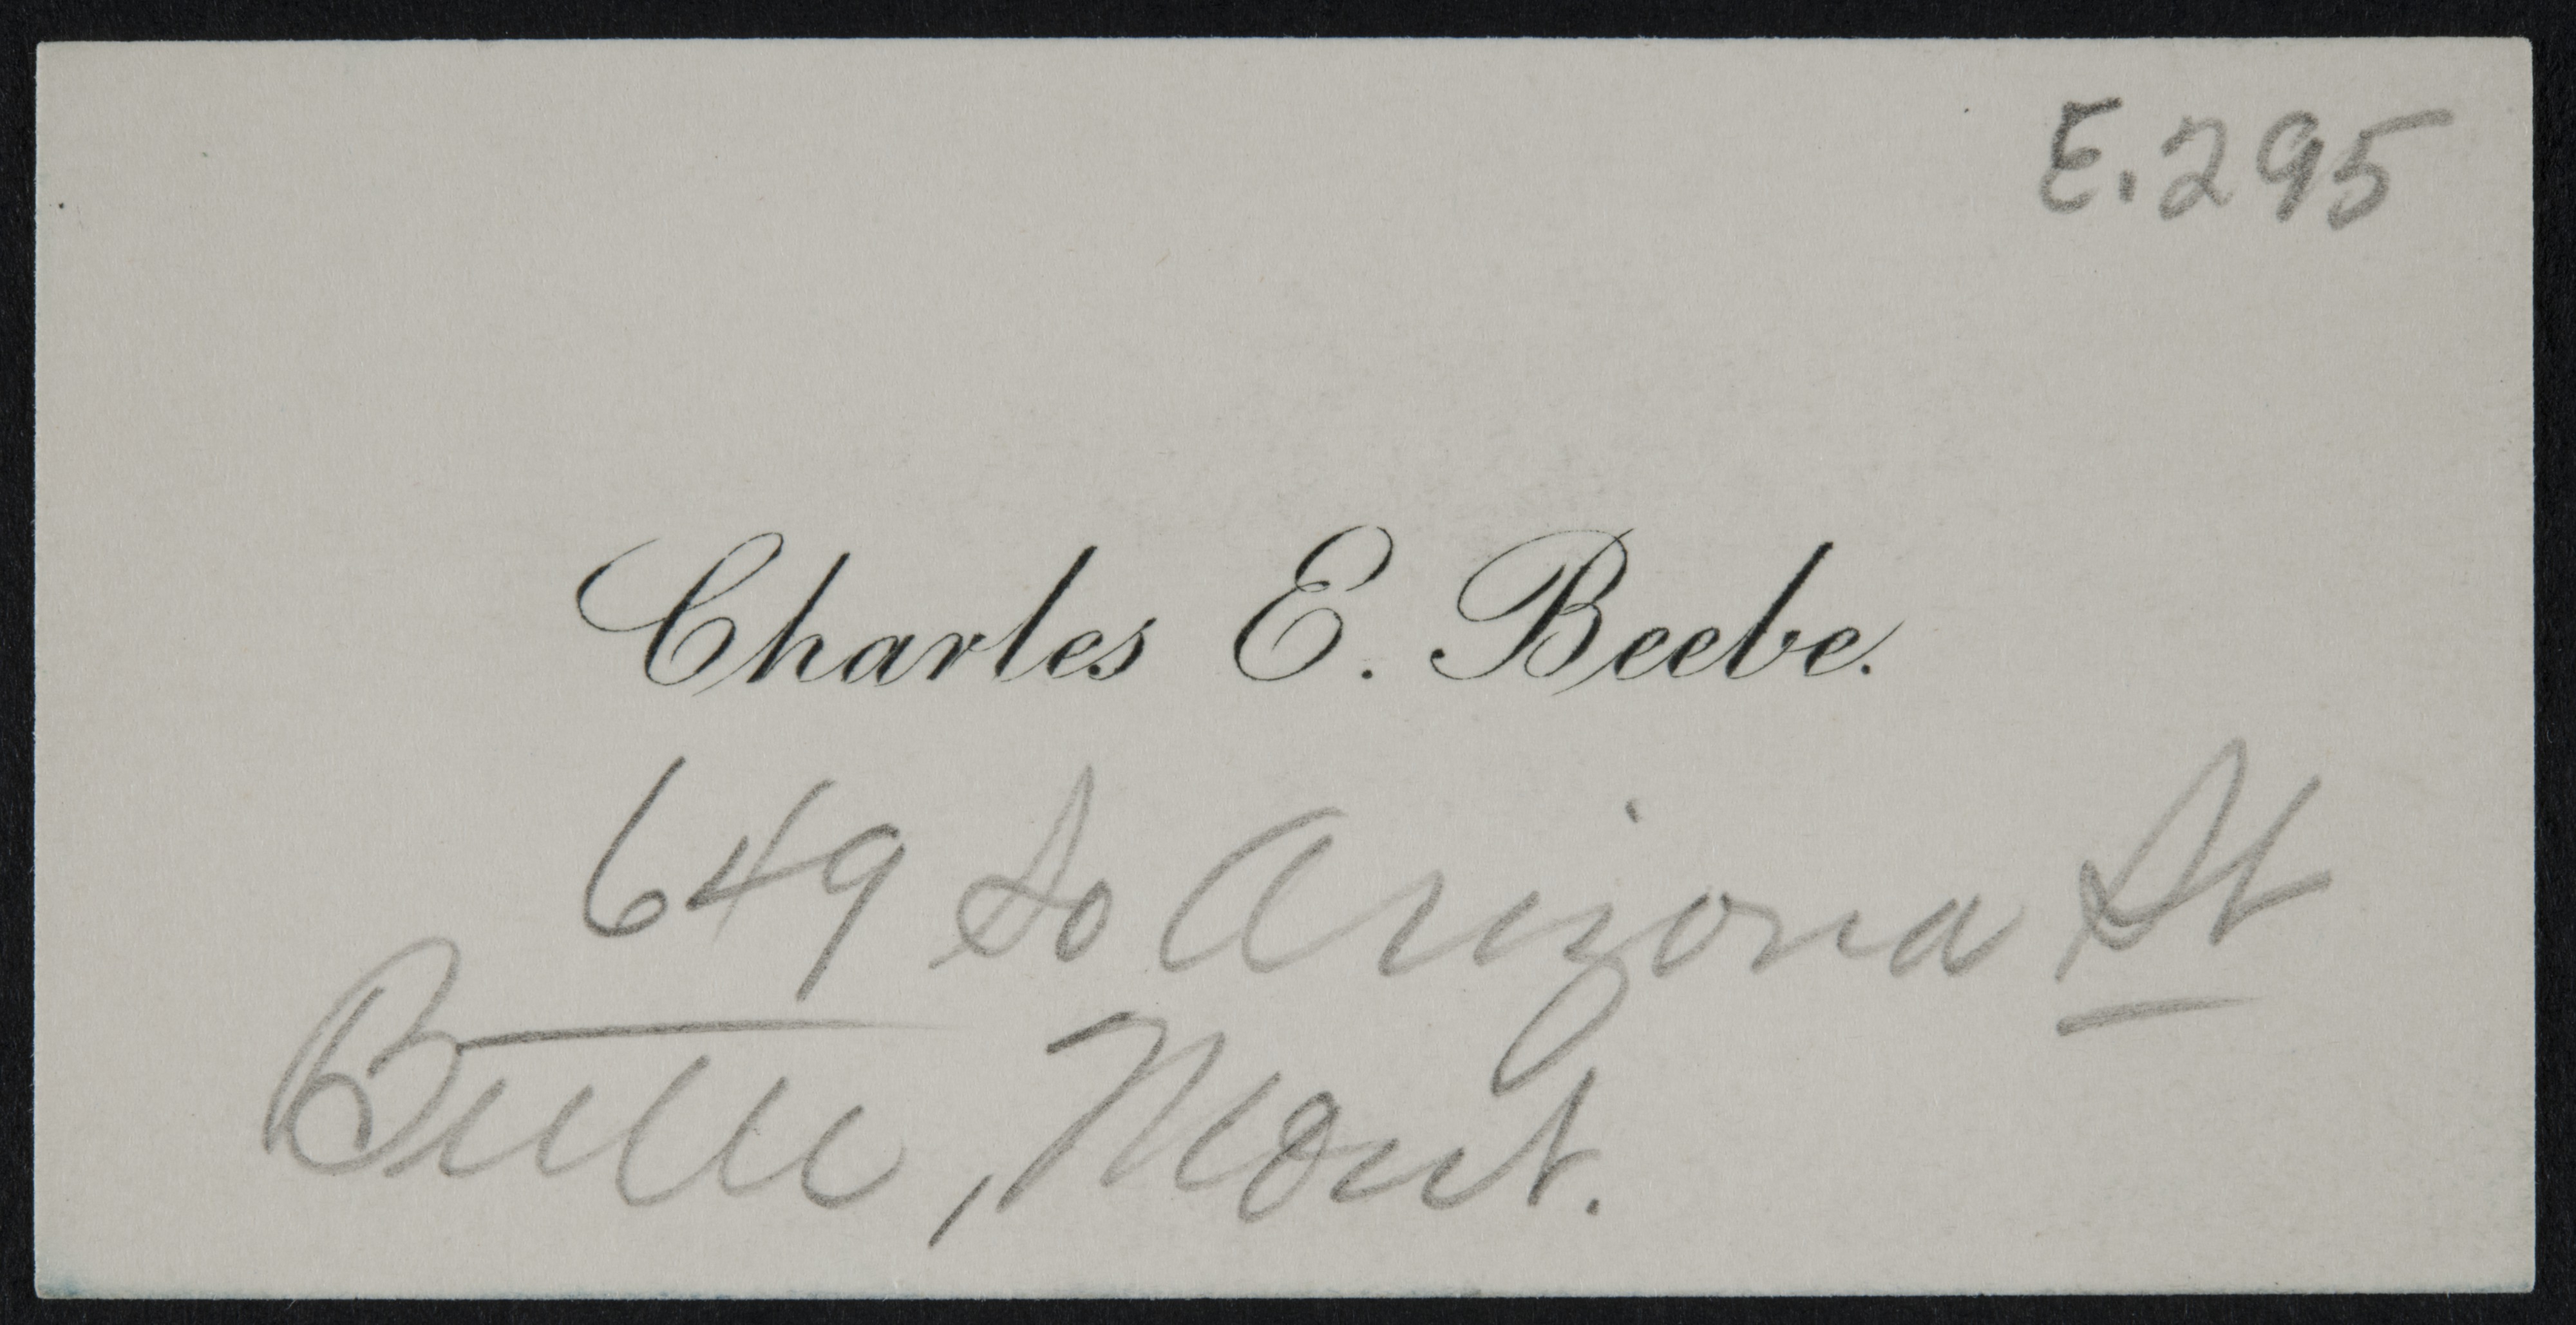 E.295
Charles E. Beebe.
649 So Arizona St
Butte, Mont.